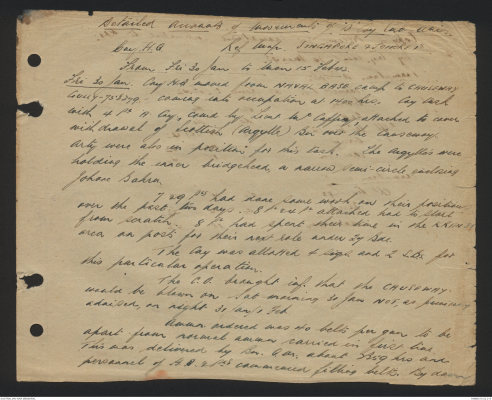 Detailed Account of Movements of
Coy H.Q. Ref Map. SINGAPORE &
From Fri 30 Jan to Mon 15 Feb.
Fri 30 Jan. Coy H.Q. moved from NAVAL BASE camp to CAUSEWAY
coming into occupation at 1400 hrs. Coy task
with 4 Pl A Coy, comd by Lieut attached to cover
withdrawal of Scottish (Argylls) Bn over the Causeway.
Arty were also in position for this task. The Argylls were
holding the inner bridgehead, a narrow semi-circle enclosing
Johore Bahru.
7 & 9 Pls had done some work on their positions
over the past two days. attached had to start
from scratch. 8 Pl had spent their time in the
area on posts for their next role under 27 Bde.
The Coy was allotted 4 sigs and 2 S.Bs. for
this particular operation.
The C.O. brought inf. that the CAUSEWAY
would be blown on Sat morning 30 Jan NOT, as previously
advised, on night 31 Jan/1 Feb.
Ammn ordered was 40 belts per gun to be
apart from normal ammn carried in first line
This was delivered by Bn. about hrs and
personnel of H.Q. & Pls commenced filling belts. By dawn